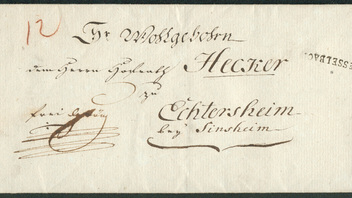 12
Sr Wohlgebohrn
dem Herrn Hofrath Hecker
zu
Echtersheim
bey Sinsheim
frei
ESSELBAC